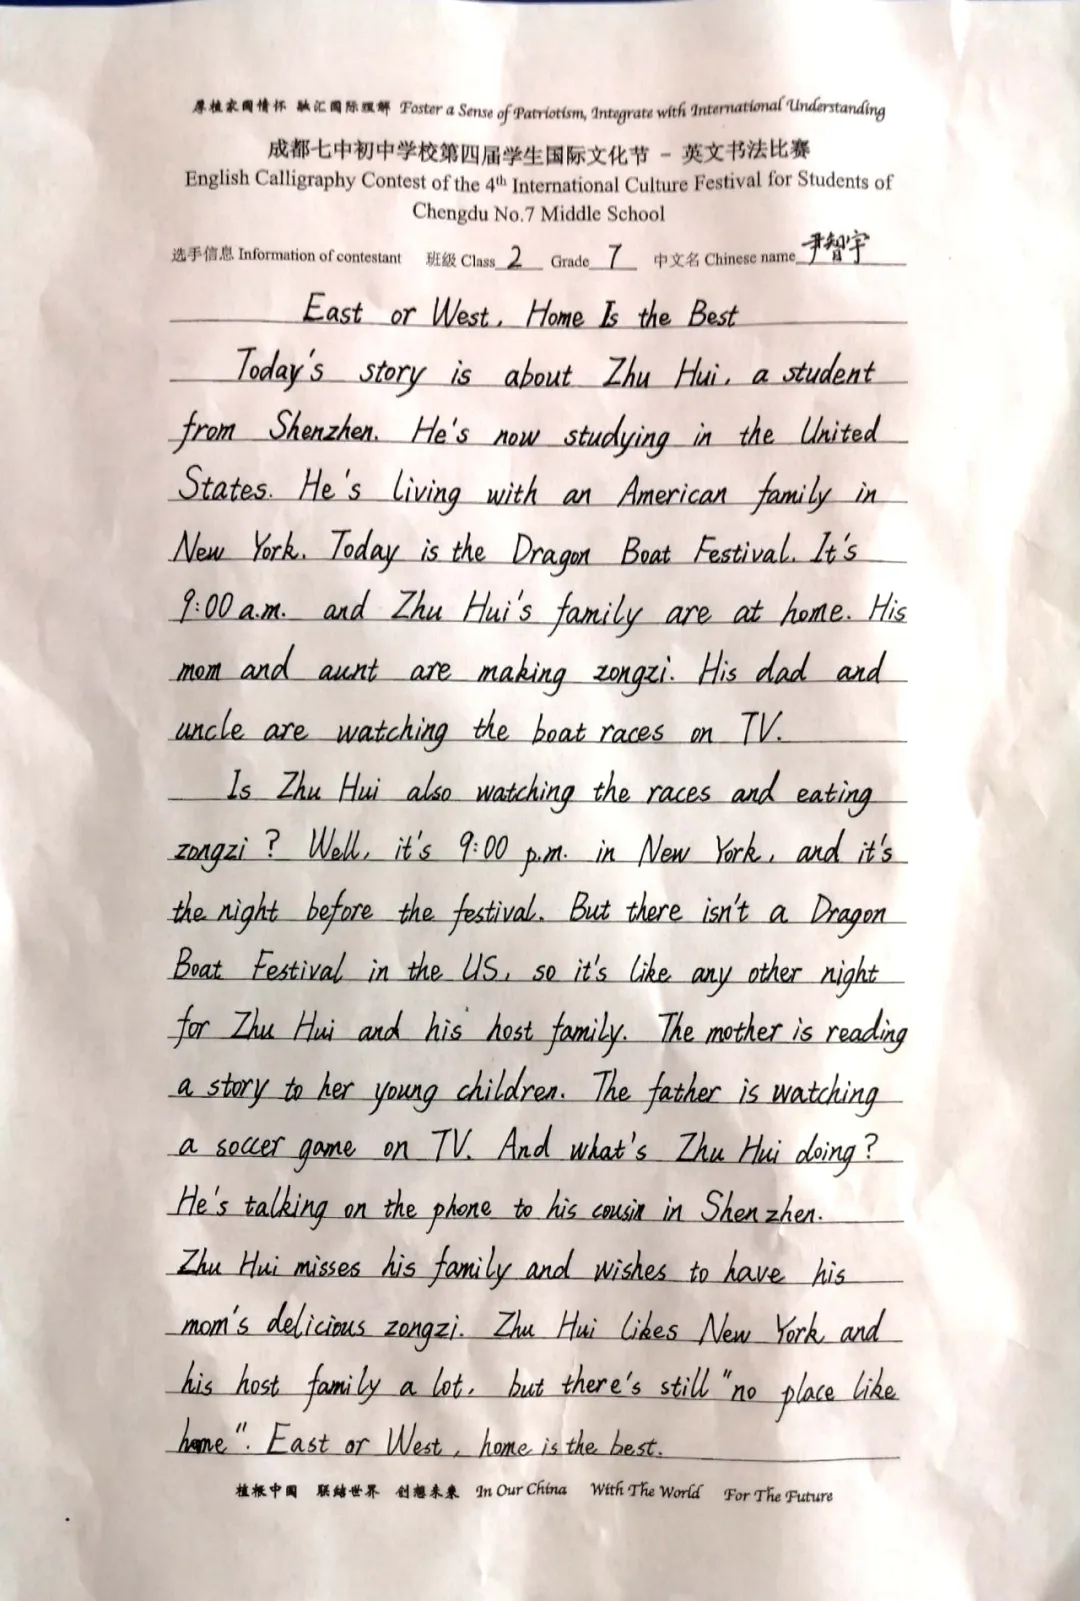 厚植家国情怀 融汇国际理解 Foster a Sense of Patriotism, Integrate with International Understanding
成都七中初中学校第四届学生国际文化节 - 英文书法比赛
English Calligraphy Contest of the 4th International Culture Festival for Students of
Chengdu No.7 Middle School
选手信息 Information of contestant 班级 Class 2 Grade 7 中文名 Chinese name 尹智宇
East or West, Home Is the Best
Today's story is about Zhu Hui, a student
from Shenzhen. He's now studying in the United
States. He's living with an American family in
New York. Today is the Dragon Boat Festival. It's
9:00 a.m. and Zhu Hui's family are at home. His
mom and aunt are making zongzi. His dad and
uncle are watching the boat races on TV.
Is Zhu Hui also watching the races and eating
zongzi? Well, it's 9:00 p.m. in New York, and it's
the night before the festival. But there isn't a Dragon
Boat Festival in the US, so it's like any other night
for Zhu Hui and his host family. The mother is reading
a story to her young children. The father is watching
a soccer game on TV. And what's Zhu Hui doing?
He's talking on the phone to his cousin in Shenzhen.
Zhu Hui misses his family and wishes to have his
mom's delicious zongzi. Zhu Hui likes New York and
his host family a lot, but there's still "no place like
home". East or West, home is the best.
植根中国 联结世界 创想未来 In Our China With The World For The Future